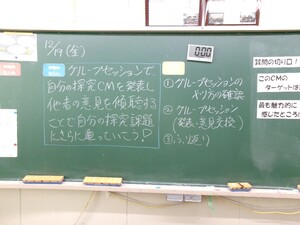 12/19(金)
0:00
グループセッションで
自分の探究CMを発表し
他者の意見を傾聴する
ことで自分の探究課題
にさらに向っていこう!
①グループセッションの
やり方の確認
②グループセッション
(発表・意見交換)
③ふり返り
質問の切り口!
このCMの
ターゲットは
最も魅力に
感じたところ